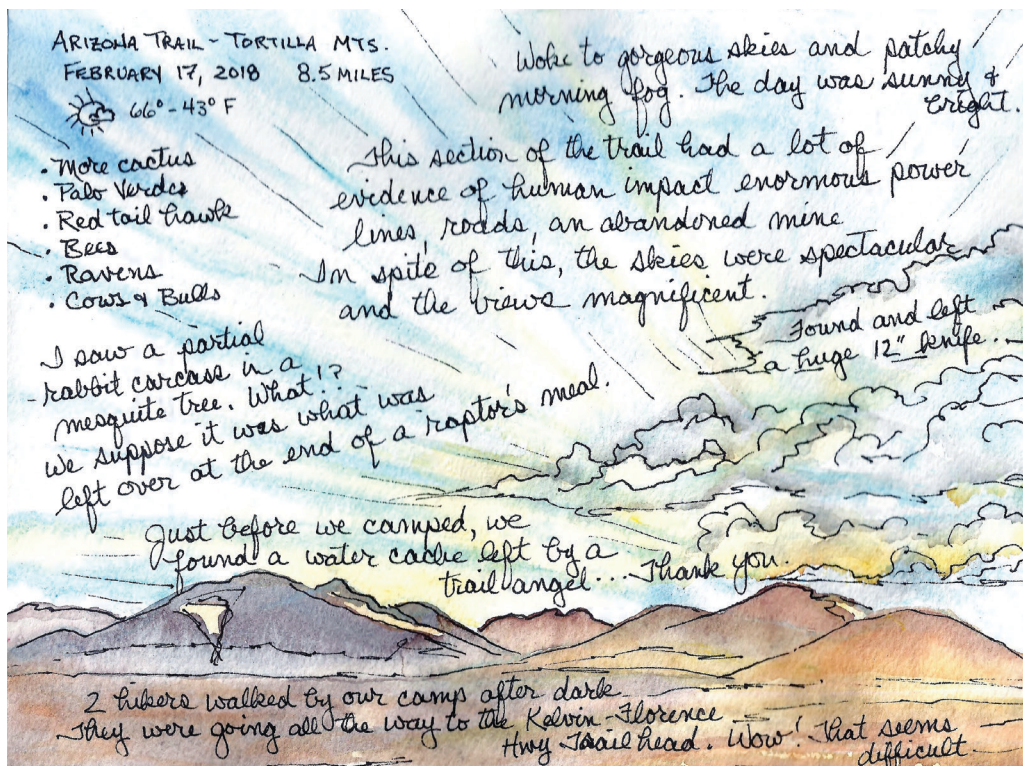 ARIZONA TRAIL - TORTILLA MTS.
FEBRUARY 17, 2018 8.5 MILES
66° - 43° F
Woke to gorgeous skies and patchy
morning fog. The day was sunny &
bright.
• More cactus
• Palo Verdes
• Red tail hawk
• Bees
• Ravens
• Cows & Bulls
This section of the trail had a lot of
evidence of human impact enormous power
lines, roads, an abandoned mine
In spite of this, the skies were spectacular
and the views magnificent.
Found and left
a huge 12" knife..
I saw a partial
rabbit carcass in a
mesquite tree. What!?
We suppose it was what was
left over at the end of a raptor's meal.
Just before we camped, we
found a water cache left by a
trail angel... Thank you.
2 hikers walked by our camp after dark
They were going all the way to the Kelvin-Florence
Hwy Trail head. Wow! That seems
difficult